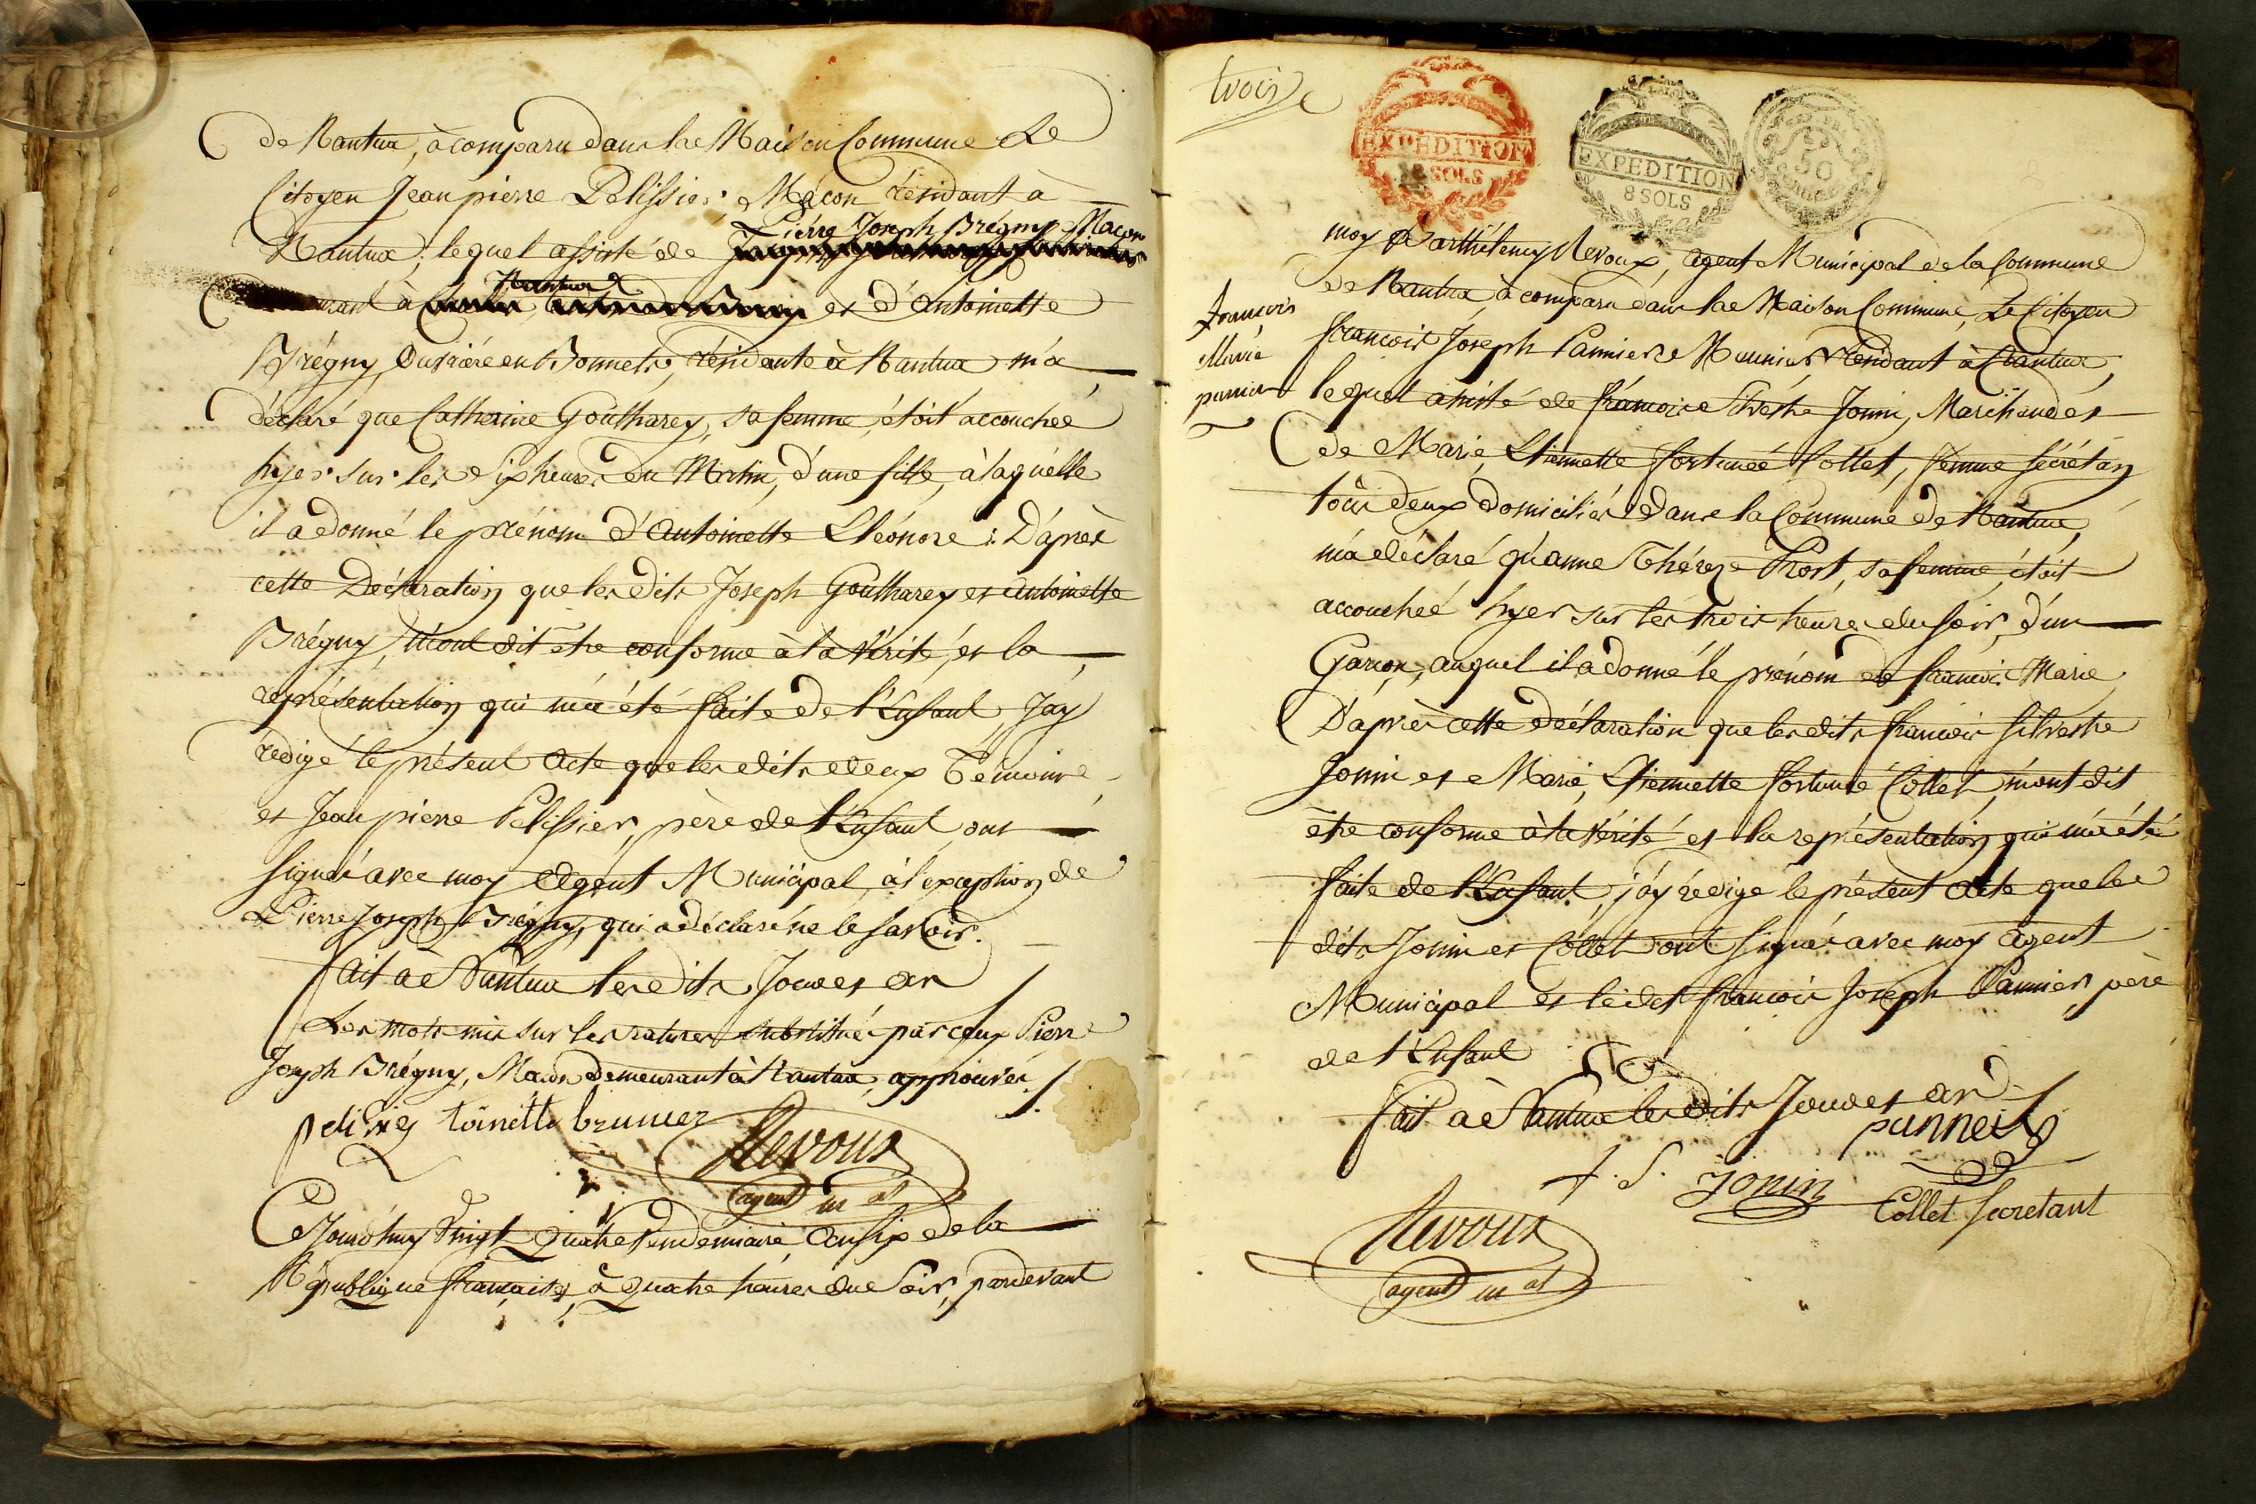 de Nantua, à comparu dans la Maison Commune Le
Citoyen Jean pierre Pelissier, Maçon résidant à
Pierre Joseph Brégny Maçon
Nantua; lequel assisté de
Nantua
à et d'Antoinette
Brégny, Ouvrière en Bonnets, résidente à Nantua m'a
déclaré que Catherine Goutharey, sa femme, étoit accouchée
hyer sur les Six heures du Matin, d'une fille, à laquelle
il a donné le prénom d'Antoinette Léonore: D'après
cette Déclaration que les dits Joseph Goutharey et Antoinette
Brégny, m'ont dit être conforme à la vérité, et la
représentation qui m'a été faite de l'Enfant, J'ay
redigé le présent Acte que les dits deux Témoins,
et Jean pierre Pelissier, père de l'Enfant ont
Signés avec moy Agent Municipal, à l'exception de
Pierre Joseph Brégny, qui a déclaré ne le savoir.
fait à Nantua les dits Jour et an
Les mots mis sur les ratures substitués par ceux Pierre
Joseph Brégny, Maçon demeurant à Nantua, approuvés
pelisiez toinette brunier
Revoux
agent m al
Ce Jourd'huy Vingt Quatre Vendemiaire, an Six de la
République française, à Quatre heures du Soir, pardevant
trois
EXPEDITION
SOLS
EXPEDITION
8 SOLS
50
moy Barthélemy Revoux, agent Municipal de la Commune
de Nantua, à comparu dans la Maison Commune, Le Citoyen
François
Marie
panier
francois Joseph Pannier Meunier résidant à Nantua,
lequel assisté de françois Silvestre Jonin, Marchand et
de Marie, Etiennette fortunée Collet, femme Secrétan
tous deux domiciliés dans la Commune de Nantua,
m'a déclaré qu'anne Thérèze Prost, sa femme, étoit
accouchée hyer sur les trois heures du Soir, d'un
Garçon, auquel il a donné le prénom de françois Marie
D'après cette déclaration que les dits françois Silvestre
Jonin et Marie, Etiennette fortuné Collet, m'ont dit
être conforme à la vérité et la représentation qui m'a été
faite de l'Enfant, j'ay redigé le présent Acte que les
dits Jonin et Collet ont Signés avec moy Agent
Municipal et le dit françois Joseph Pannier, père
de l'Enfant
fait à Nantua les dits Jour et an
panneir
f. S. Jonin
Collet Secretant
Revoux
agent m al